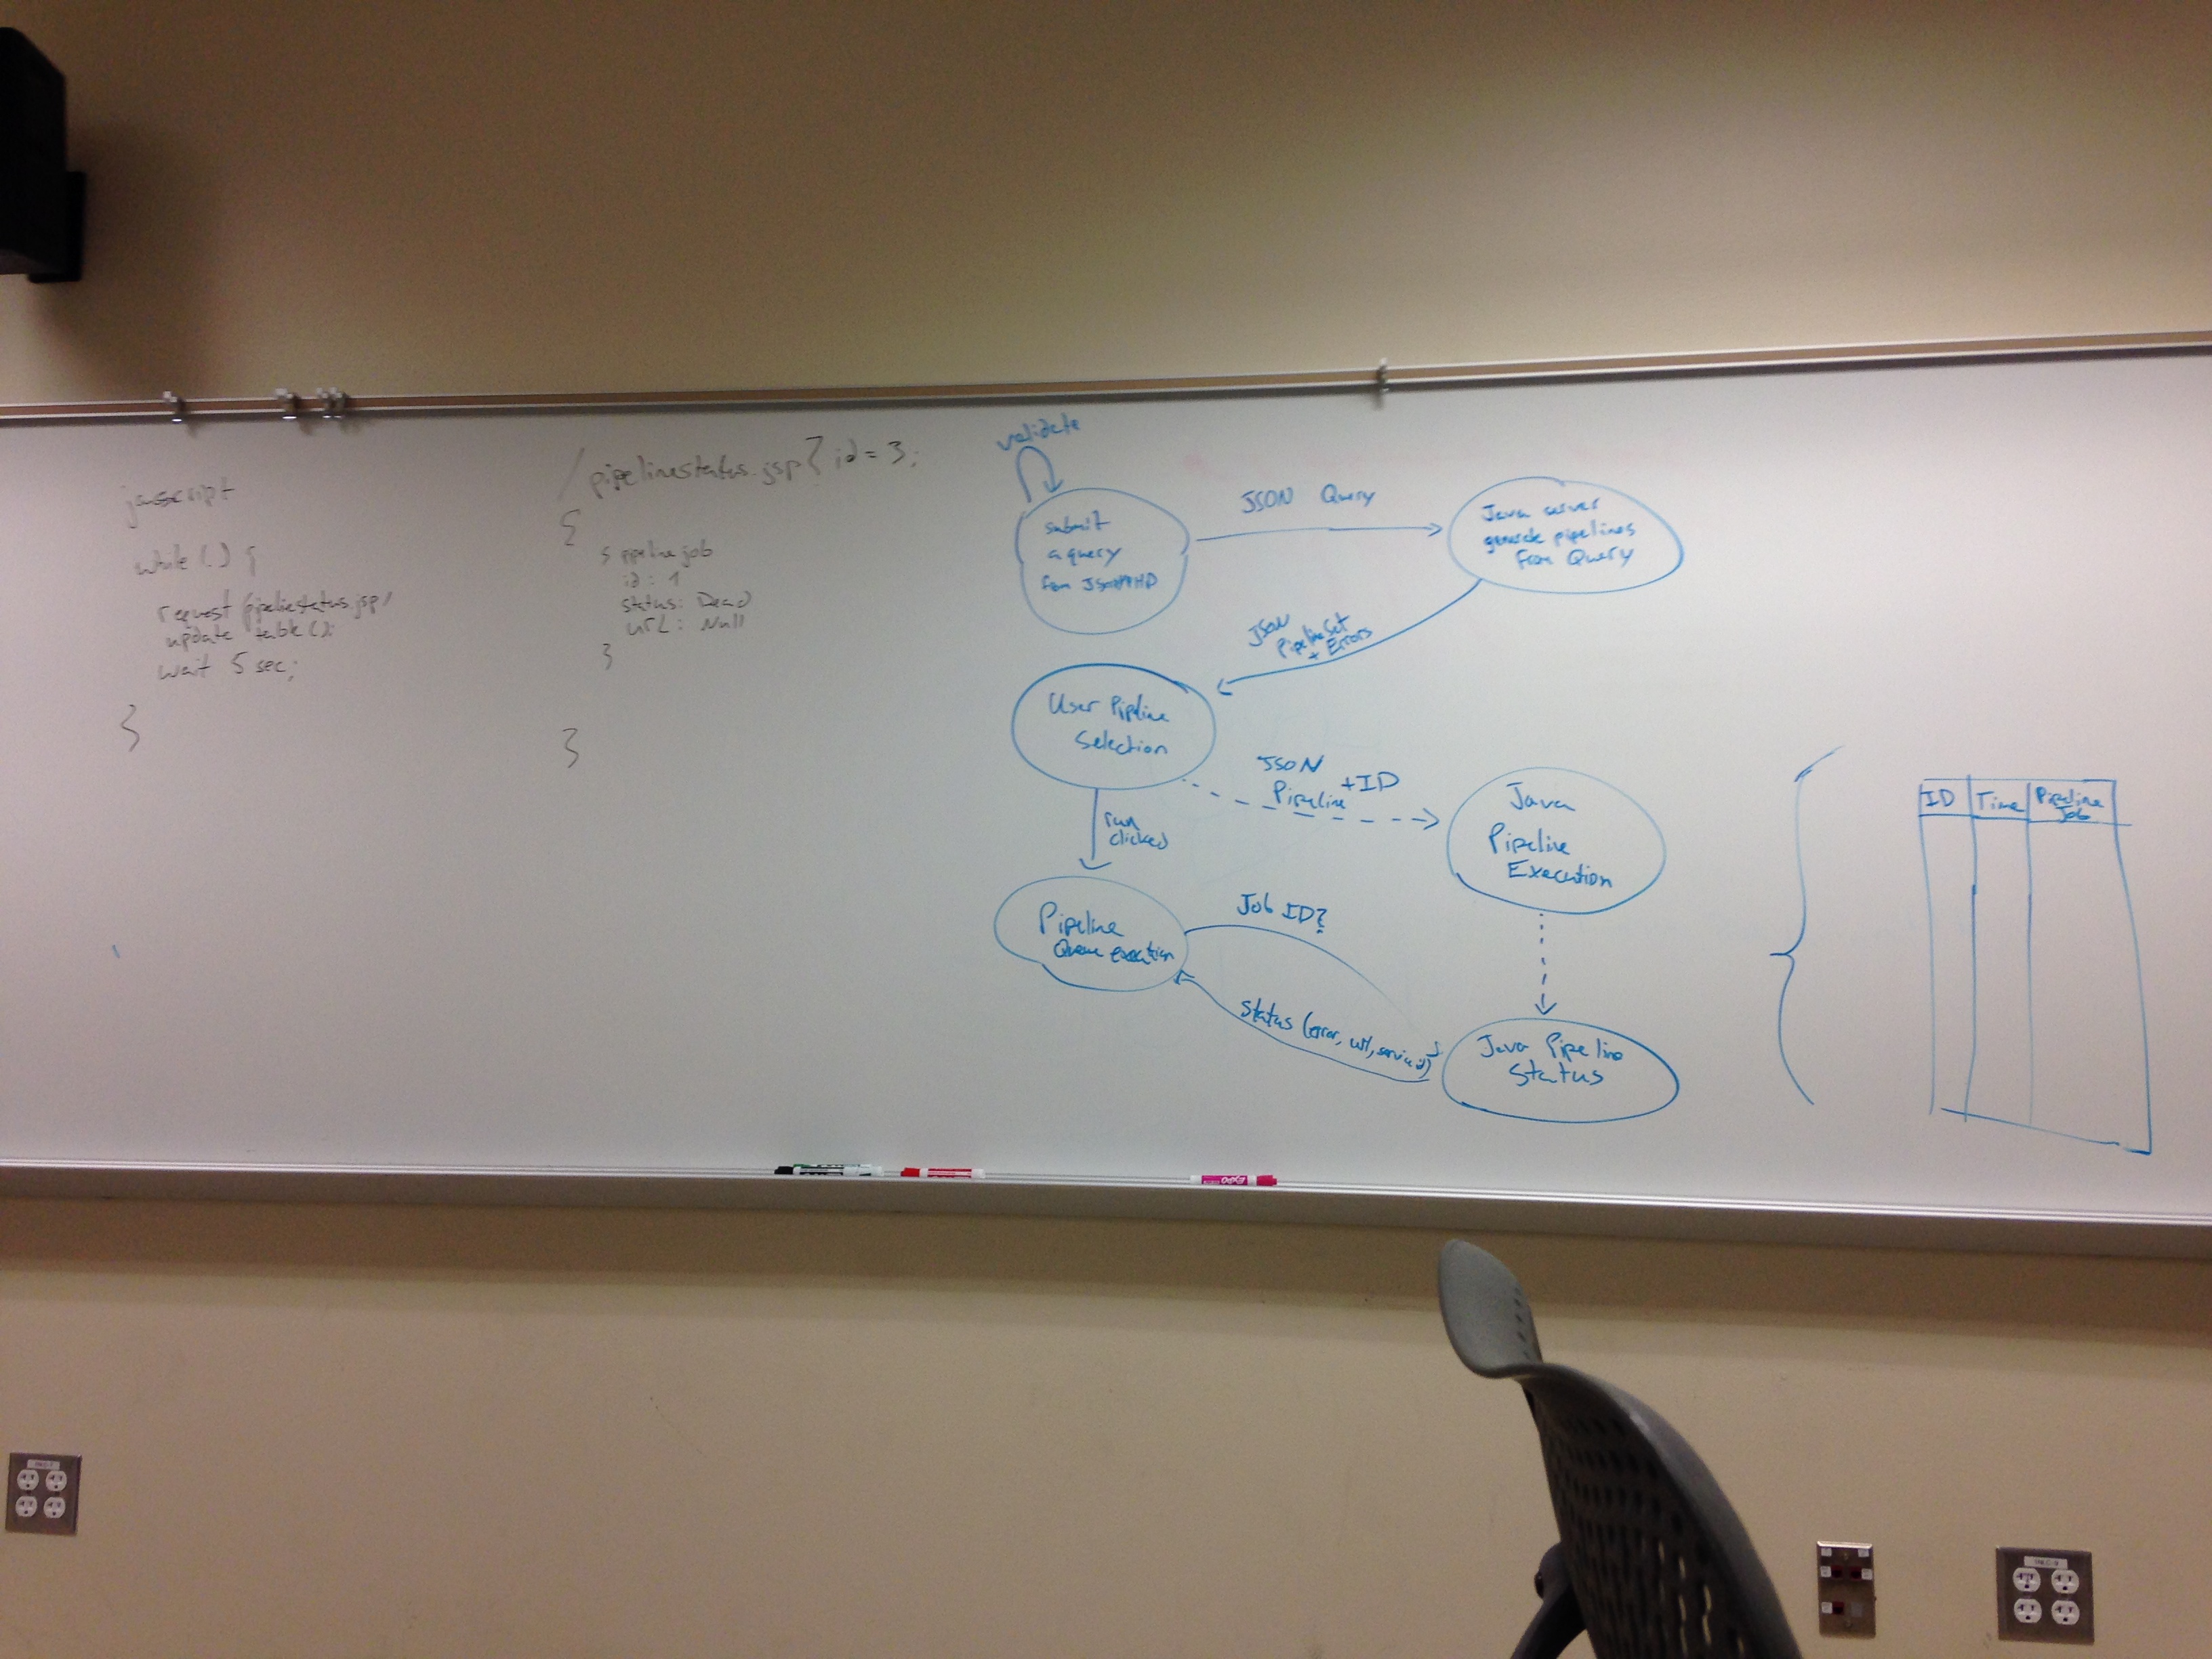 javascript
while (.) {
request pipelinestatus.jsp/
update table();
wait 5 sec;
}
/pipelinestatus.jsp? id = 3;
{
{ pipeline job
id : 1
status: Dead
url : Null
}
}
validate
submit
a query
JSON Query
Java server
generate pipelines
from Query
JSON
PipelineSet
+ Errors
User Pipeline
Selection
JSON
Pipeline +ID
run
clicked
Java
Pipeline
Execution
Pipeline
Queue execution
Job ID?
Status (error, url, service id)
Java Pipeline
Status
ID Time Pipeline
Job
EXPO